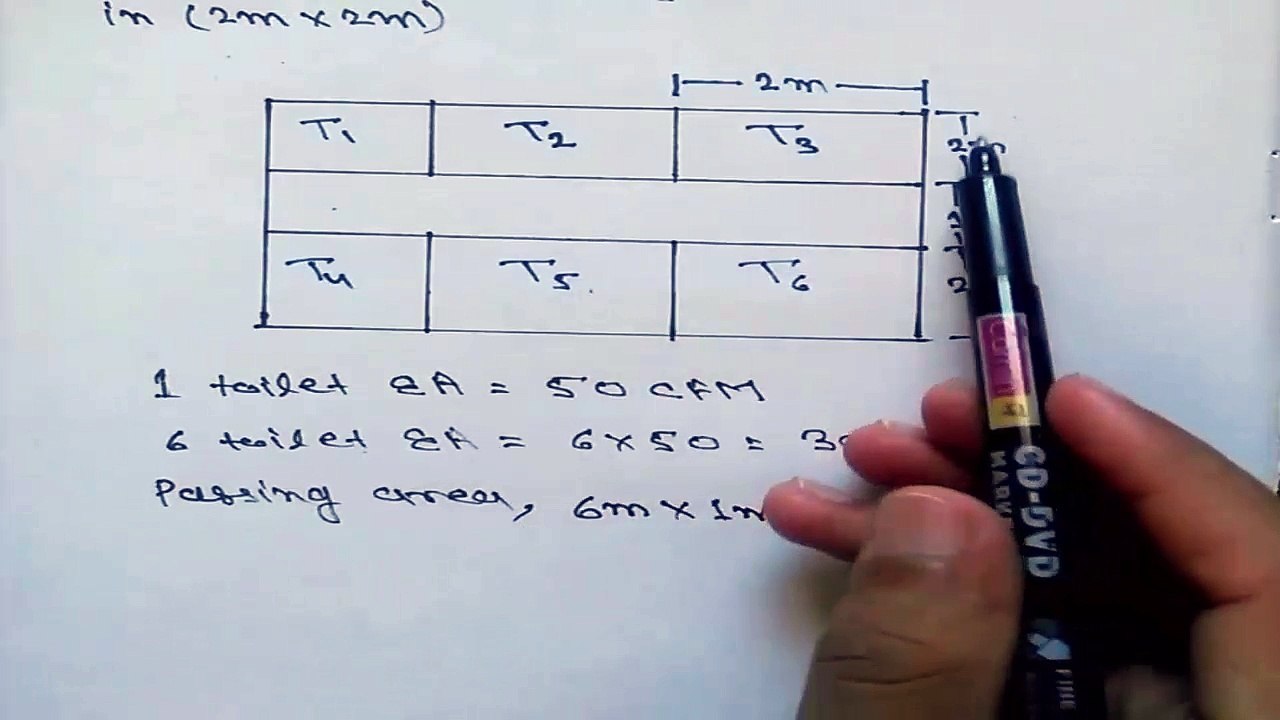 in (2m x 2m)
2m
T1 T2 T3
2m
T4 T5 T6
2
1 toilet EA = 50 CFM
6 toilet EA = 6x50 =
Passing area, 6m x 1m
CD-DVD
MARK
FINE